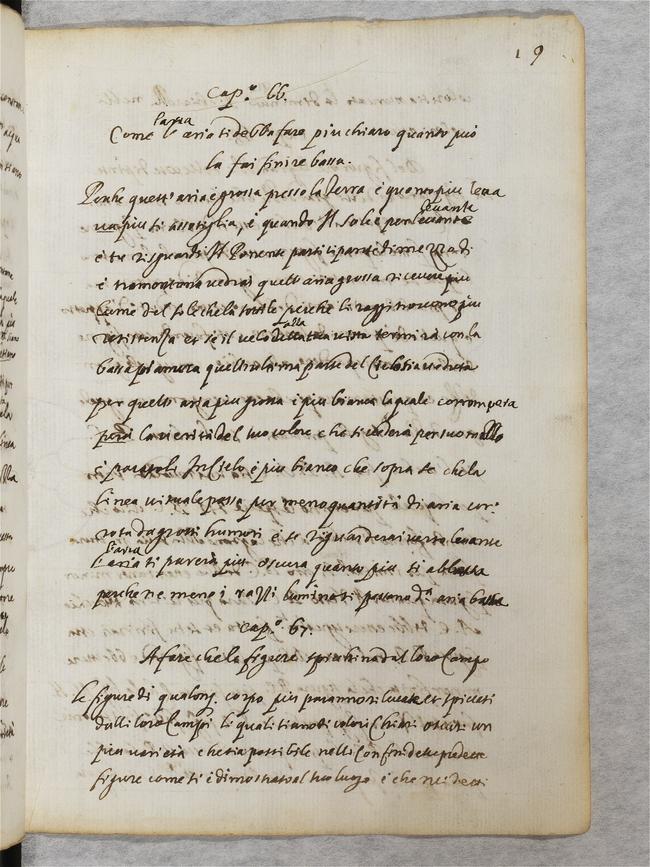 19
Cap.º 66.
Come l'aria
l'aria si debba fare più chiara quanto più
la fai finire bassa.
Perche quest'aria è grossa presso la terra è quanto più leva
più si assotiglia, è quando il sole è per levante
levante
è te risguardi il Ponente parti parte di mezzodi
è tramontana vedrai quell aria grossa ricevere più
lume del sole che la sotile perche li raggi trovono più
resistenza et se il velo della tua vista terminà con la
dalla
bassa pianura quella ultima parte del Cielo sia veduta
per quell aria più grossa è più bianca la quale corrompera
la verità del tuo colore che si vedera per suo mezzo
è in Cielo è più bianco che sopra te che la
linea visuale passa per meno quantità di aria cor.
rota da grossi humori è se riguarderai verso levante
l'aria
l'aria ti parerà più oscura quanto più si abbassa
perche ne meno i raggi luminosi passano aria bassa
cap.º 67.
A fare che la figure spichino dal loro Campo
le figure di qualonq. corpo più paranno rilevate et spiccati
dalli loro Campi li quali siano di colori Chiari oscuri
più varietà che sia possibile nelli Confini delle predette
figure come si è dimostrato al suo luogo è che ne detti